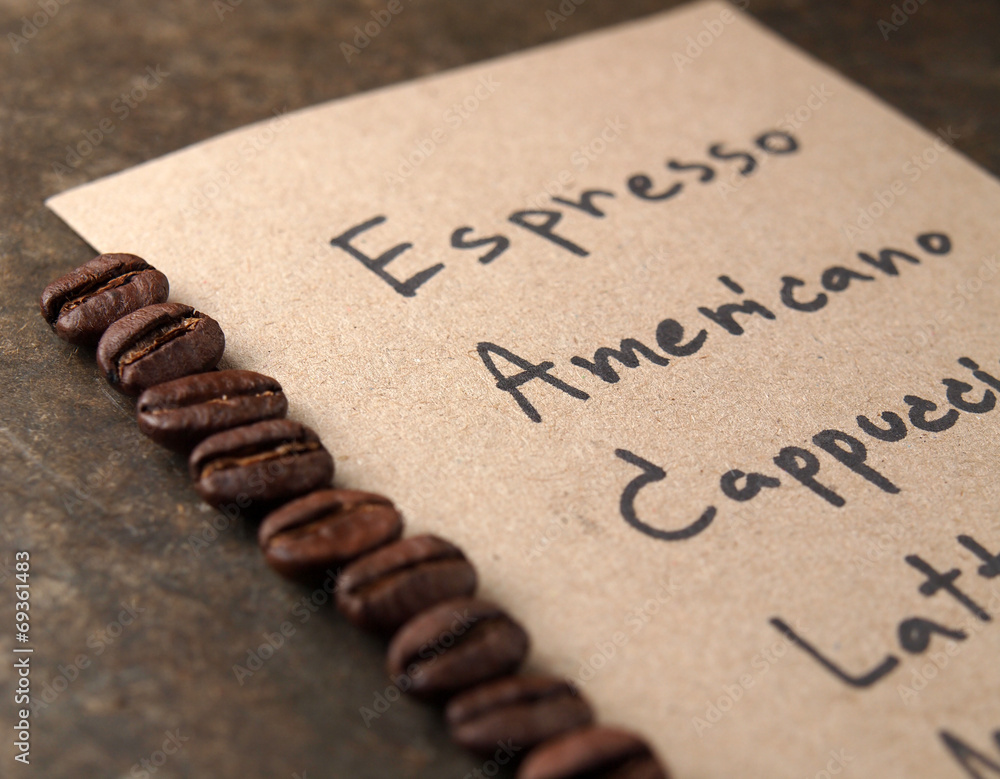 Espresso
Americano
Cappucci
Latt
Adobe Stock | 69361483